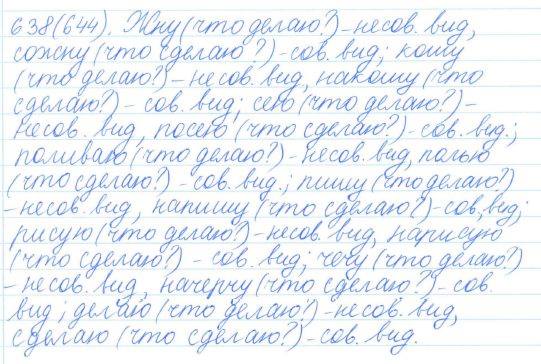 638(644). Жну (что делаю?) – несов. вид,
сожну (что сделаю?) – сов. вид; кошу
(что делаю?) – несов. вид, накошу (что
сделаю?) – сов. вид; сею (что делаю?) –
несов. вид, посею (что сделаю?) – сов. вид.;
поливаю (что делаю?) – несов. вид, полью
(что сделаю?) – сов. вид.; пишу (что делаю?)
– несов. вид, напишу (что сделаю?) – сов. вид;
рисую (что делаю?) – несов. вид, нарисую
(что сделаю?) – сов. вид; чечу (что делаю?)
– несов. вид, начерчу (что сделаю?) – сов.
вид; делаю (что делаю?) – несов. вид,
сделаю (что сделаю?) – сов. вид.